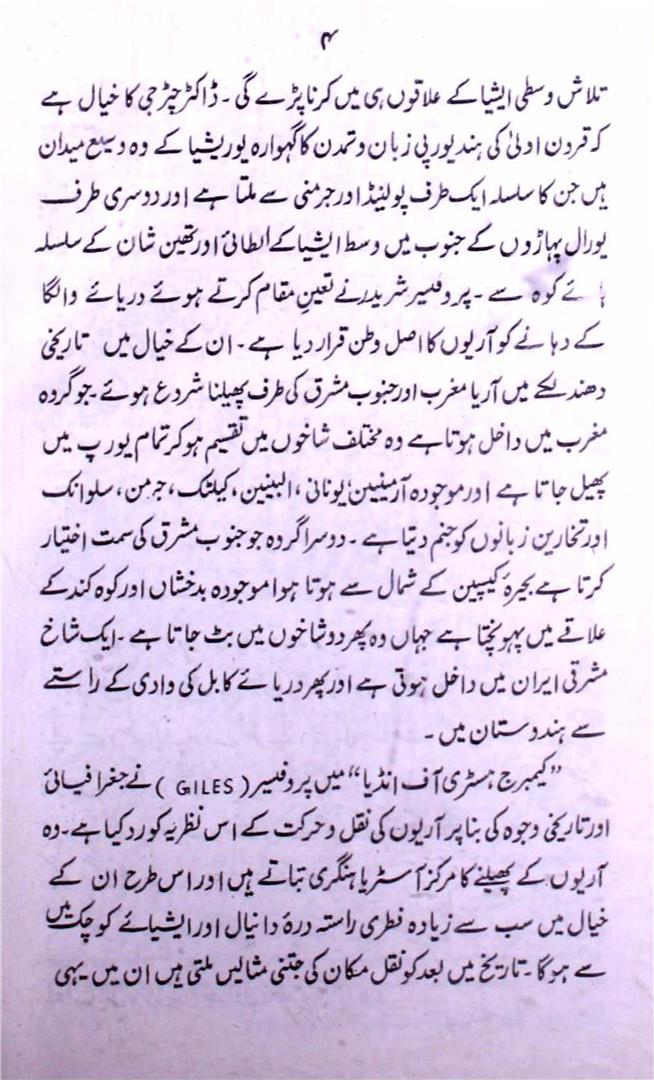 ۴
تلاش وسطی ایشیا کے علاقوں ہی میں کرنا پڑے گی ۔ ڈاکٹر چٹرجی کا خیال ہے
کہ قرون اولیٰ کی ہند یورپی زبان و تمدن کا گہوارہ یوریشیا کے وہ وسیع میدان
ہیں جن کا سلسلہ ایک طرف پولینڈ اور جرمنی سے ملتا ہے اور دوسری طرف
یورال پہاڑوں کے جنوب میں وسط ایشیا کے الطائی اور تھین شان کے سلسلہ
ہائے کوہ سے ۔ پروفیسر شریڈر نے تعینِ مقام کرتے ہوئے دریائے والگا
کے دہانے کو آریوں کا اصل وطن قرار دیا ہے ۔ ان کے خیال میں تاریخی
دھندلکے میں آریا مغرب اور جنوب مشرق کی طرف پھیلنا شروع ہوئے ۔ جو گروہ
مغرب میں داخل ہوتا ہے وہ مختلف شاخوں میں تقسیم ہو کر تمام یورپ میں
پھیل جاتا ہے اور موجودہ آرمینین، یونانی، البینین، کیلٹک، جرمن، سلوانک
اور تخارین زبانوں کو جنم دیتا ہے ۔ دوسرا گروہ جو جنوب مشرق کی سمت اختیار
کرتا ہے بحیرۂ کیسپین کے شمال سے ہوتا ہوا موجودہ بدخشاں اور کوہ کند کے
علاقے میں پہونچتا ہے جہاں وہ پھر دو شاخوں میں بٹ جاتا ہے ۔ ایک شاخ
مشرقی ایران میں داخل ہوتی ہے اور پھر دریائے کابل کی وادی کے راستے
سے ہندوستان میں ۔
”کیمبرج ہسٹری آف انڈیا“ میں پروفیسر (GILES) نے جغرافیائی
اور تاریخی وجوہ کی بنا پر آریوں کی نقل و حرکت کے اس نظریہ کو رد کیا ہے ۔ وہ
آریوں کے پھیلنے کا مرکز آسٹریا ہنگری بتاتے ہیں اور اس طرح ان کے
خیال میں سب سے زیادہ فطری راستہ درۂ دانیال اور ایشیائے کوچک میں
سے ہوگا ۔ تاریخ میں بعد کو نقل مکان کی جتنی مثالیں ملتی ہیں ان میں یہی